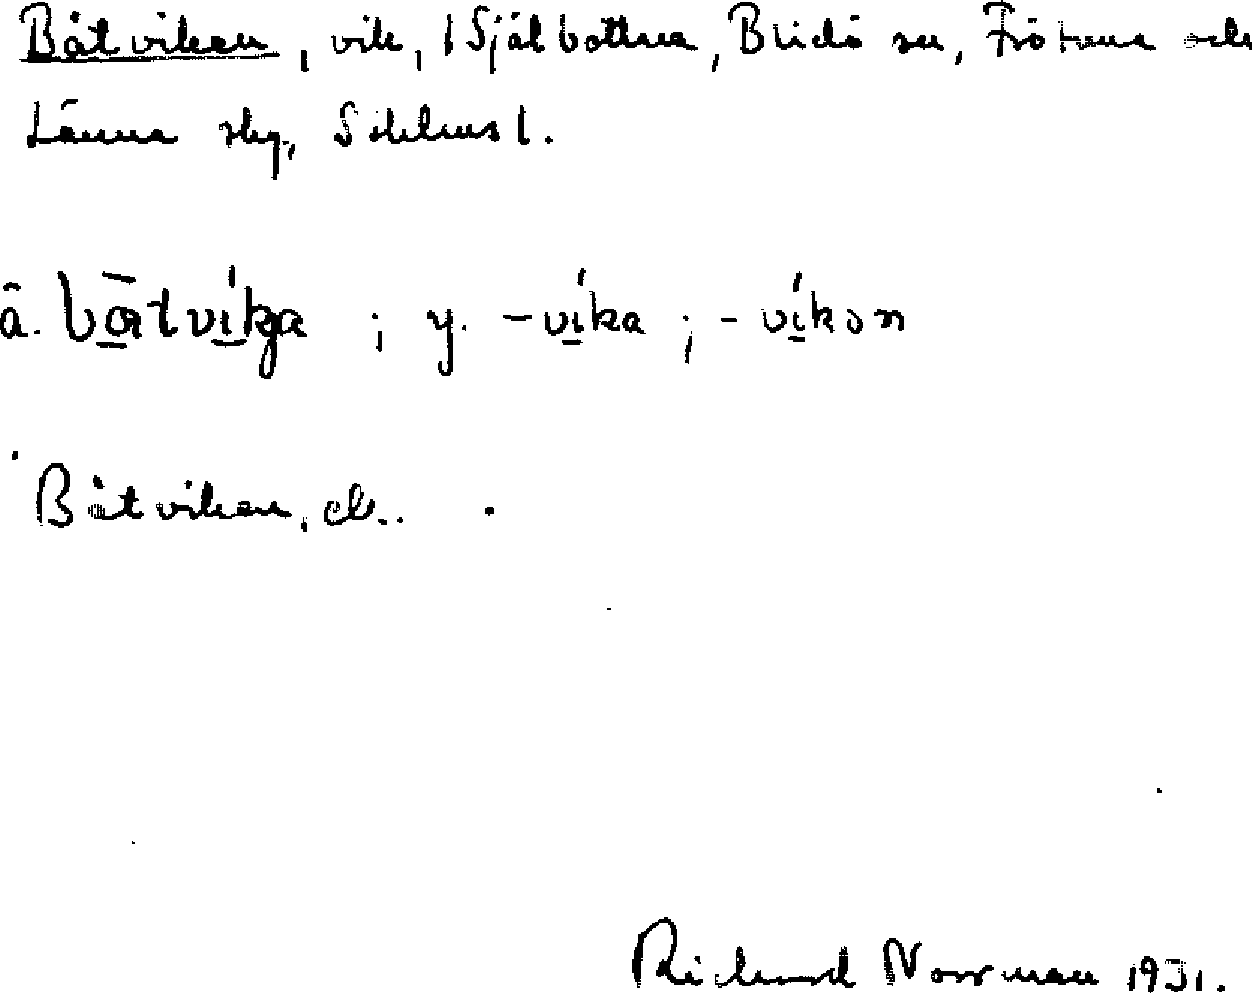 Båtviken, vik, i Själbottna, Blidö sn, Frötuna och
Länna skg, Sthlms l.
ä. bōtvíka ; y. -víka ; -víkən
Båtviken, ek..
Richard Norrman 1931.